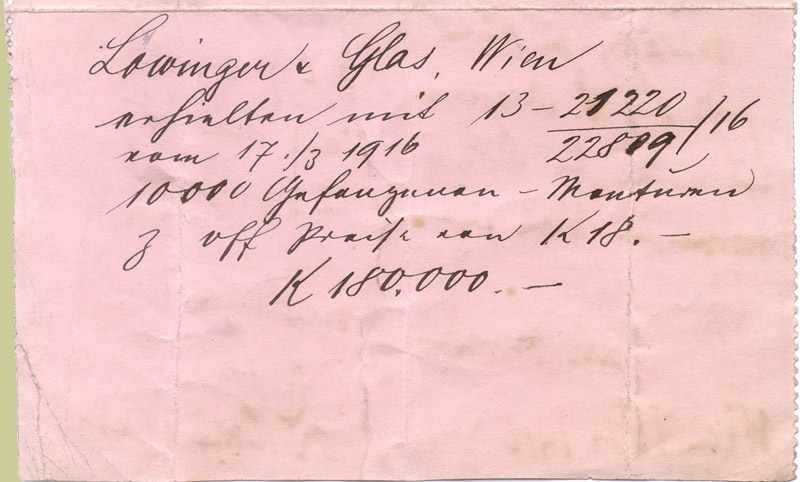 Löwinger & Glas, Wien
erhielten mit 13 - 21220/22819/16
vom 17./3 1916
10000 Gefangenen - Monturen
z off Preise von K 18.-
K 180.000.-